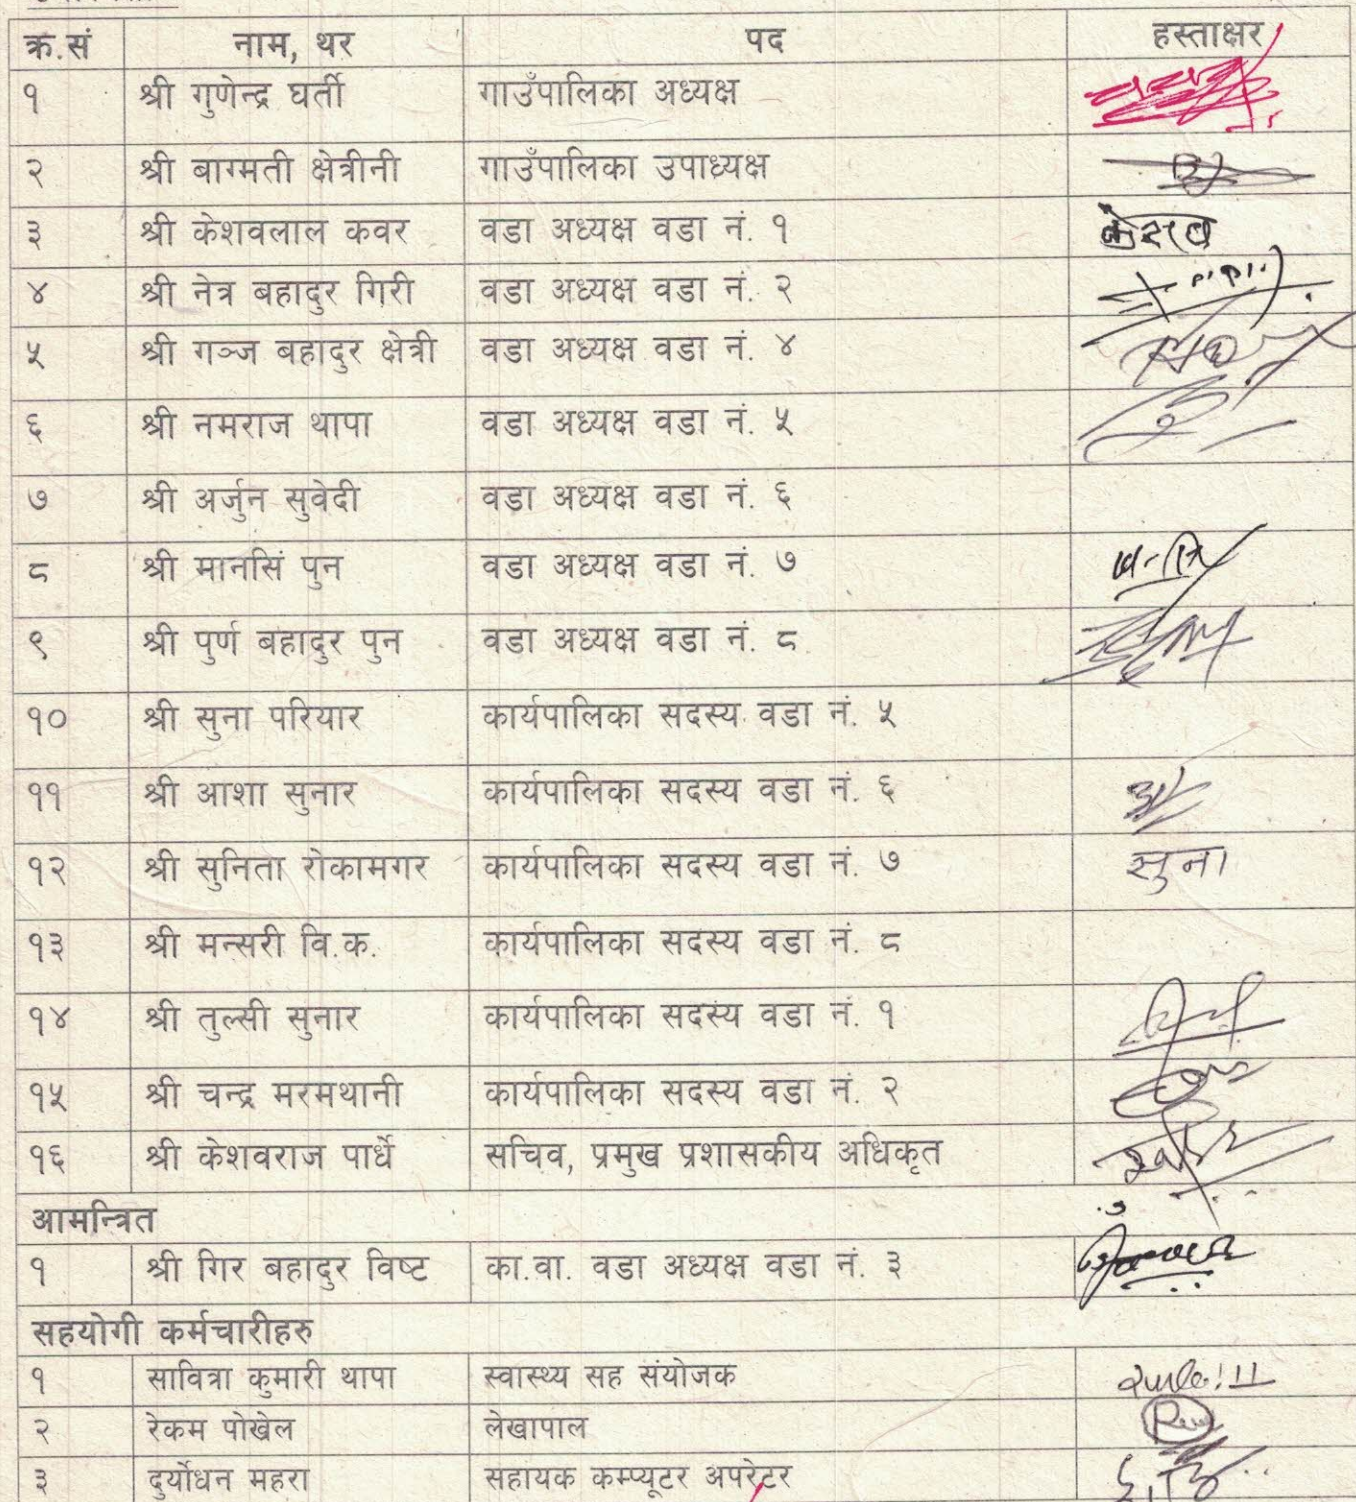 क्र.सं नाम, थर पद हस्ताक्षर
१ श्री गुणेन्द्र घर्ती गाउँपालिका अध्यक्ष
२ श्री बाग्मती क्षेत्रीनी गाउँपालिका उपाध्यक्ष
३ श्री केशवलाल कवर वडा अध्यक्ष वडा नं. १ केसब
४ श्री नेत्र बहादुर गिरी वडा अध्यक्ष वडा नं. २
५ श्री गञ्ज बहादुर क्षेत्री वडा अध्यक्ष वडा नं. ४
६ श्री नमराज थापा वडा अध्यक्ष वडा नं. ५
७ श्री अर्जुन सुवेदी वडा अध्यक्ष वडा नं. ६
८ श्री मानसिं पुन वडा अध्यक्ष वडा नं. ७
९ श्री पुर्ण बहादुर पुन वडा अध्यक्ष वडा नं. ८
१० श्री सुना परियार कार्यपालिका सदस्य वडा नं. ५
११ श्री आशा सुनार कार्यपालिका सदस्य वडा नं. ६
१२ श्री सुनिता रोकामगर कार्यपालिका सदस्य वडा नं. ७ सुना
१३ श्री मन्सरी वि.क. कार्यपालिका सदस्य वडा नं. ८
१४ श्री तुल्सी सुनार कार्यपालिका सदस्य वडा नं. १
१५ श्री चन्द्र मरमथानी कार्यपालिका सदस्य वडा नं. २
१६ श्री केशवराज पार्धे सचिव, प्रमुख प्रशासकीय अधिकृत
आमन्त्रित
१ श्री गिर बहादुर विष्ट का.वा. वडा अध्यक्ष वडा नं. ३
सहयोगी कर्मचारीहरु
१ सावित्रा कुमारी थापा स्वास्थ्य सह संयोजक
२ रेकम पोखेल लेखापाल
३ दुर्योधन महरा सहायक कम्प्यूटर अपरेटर